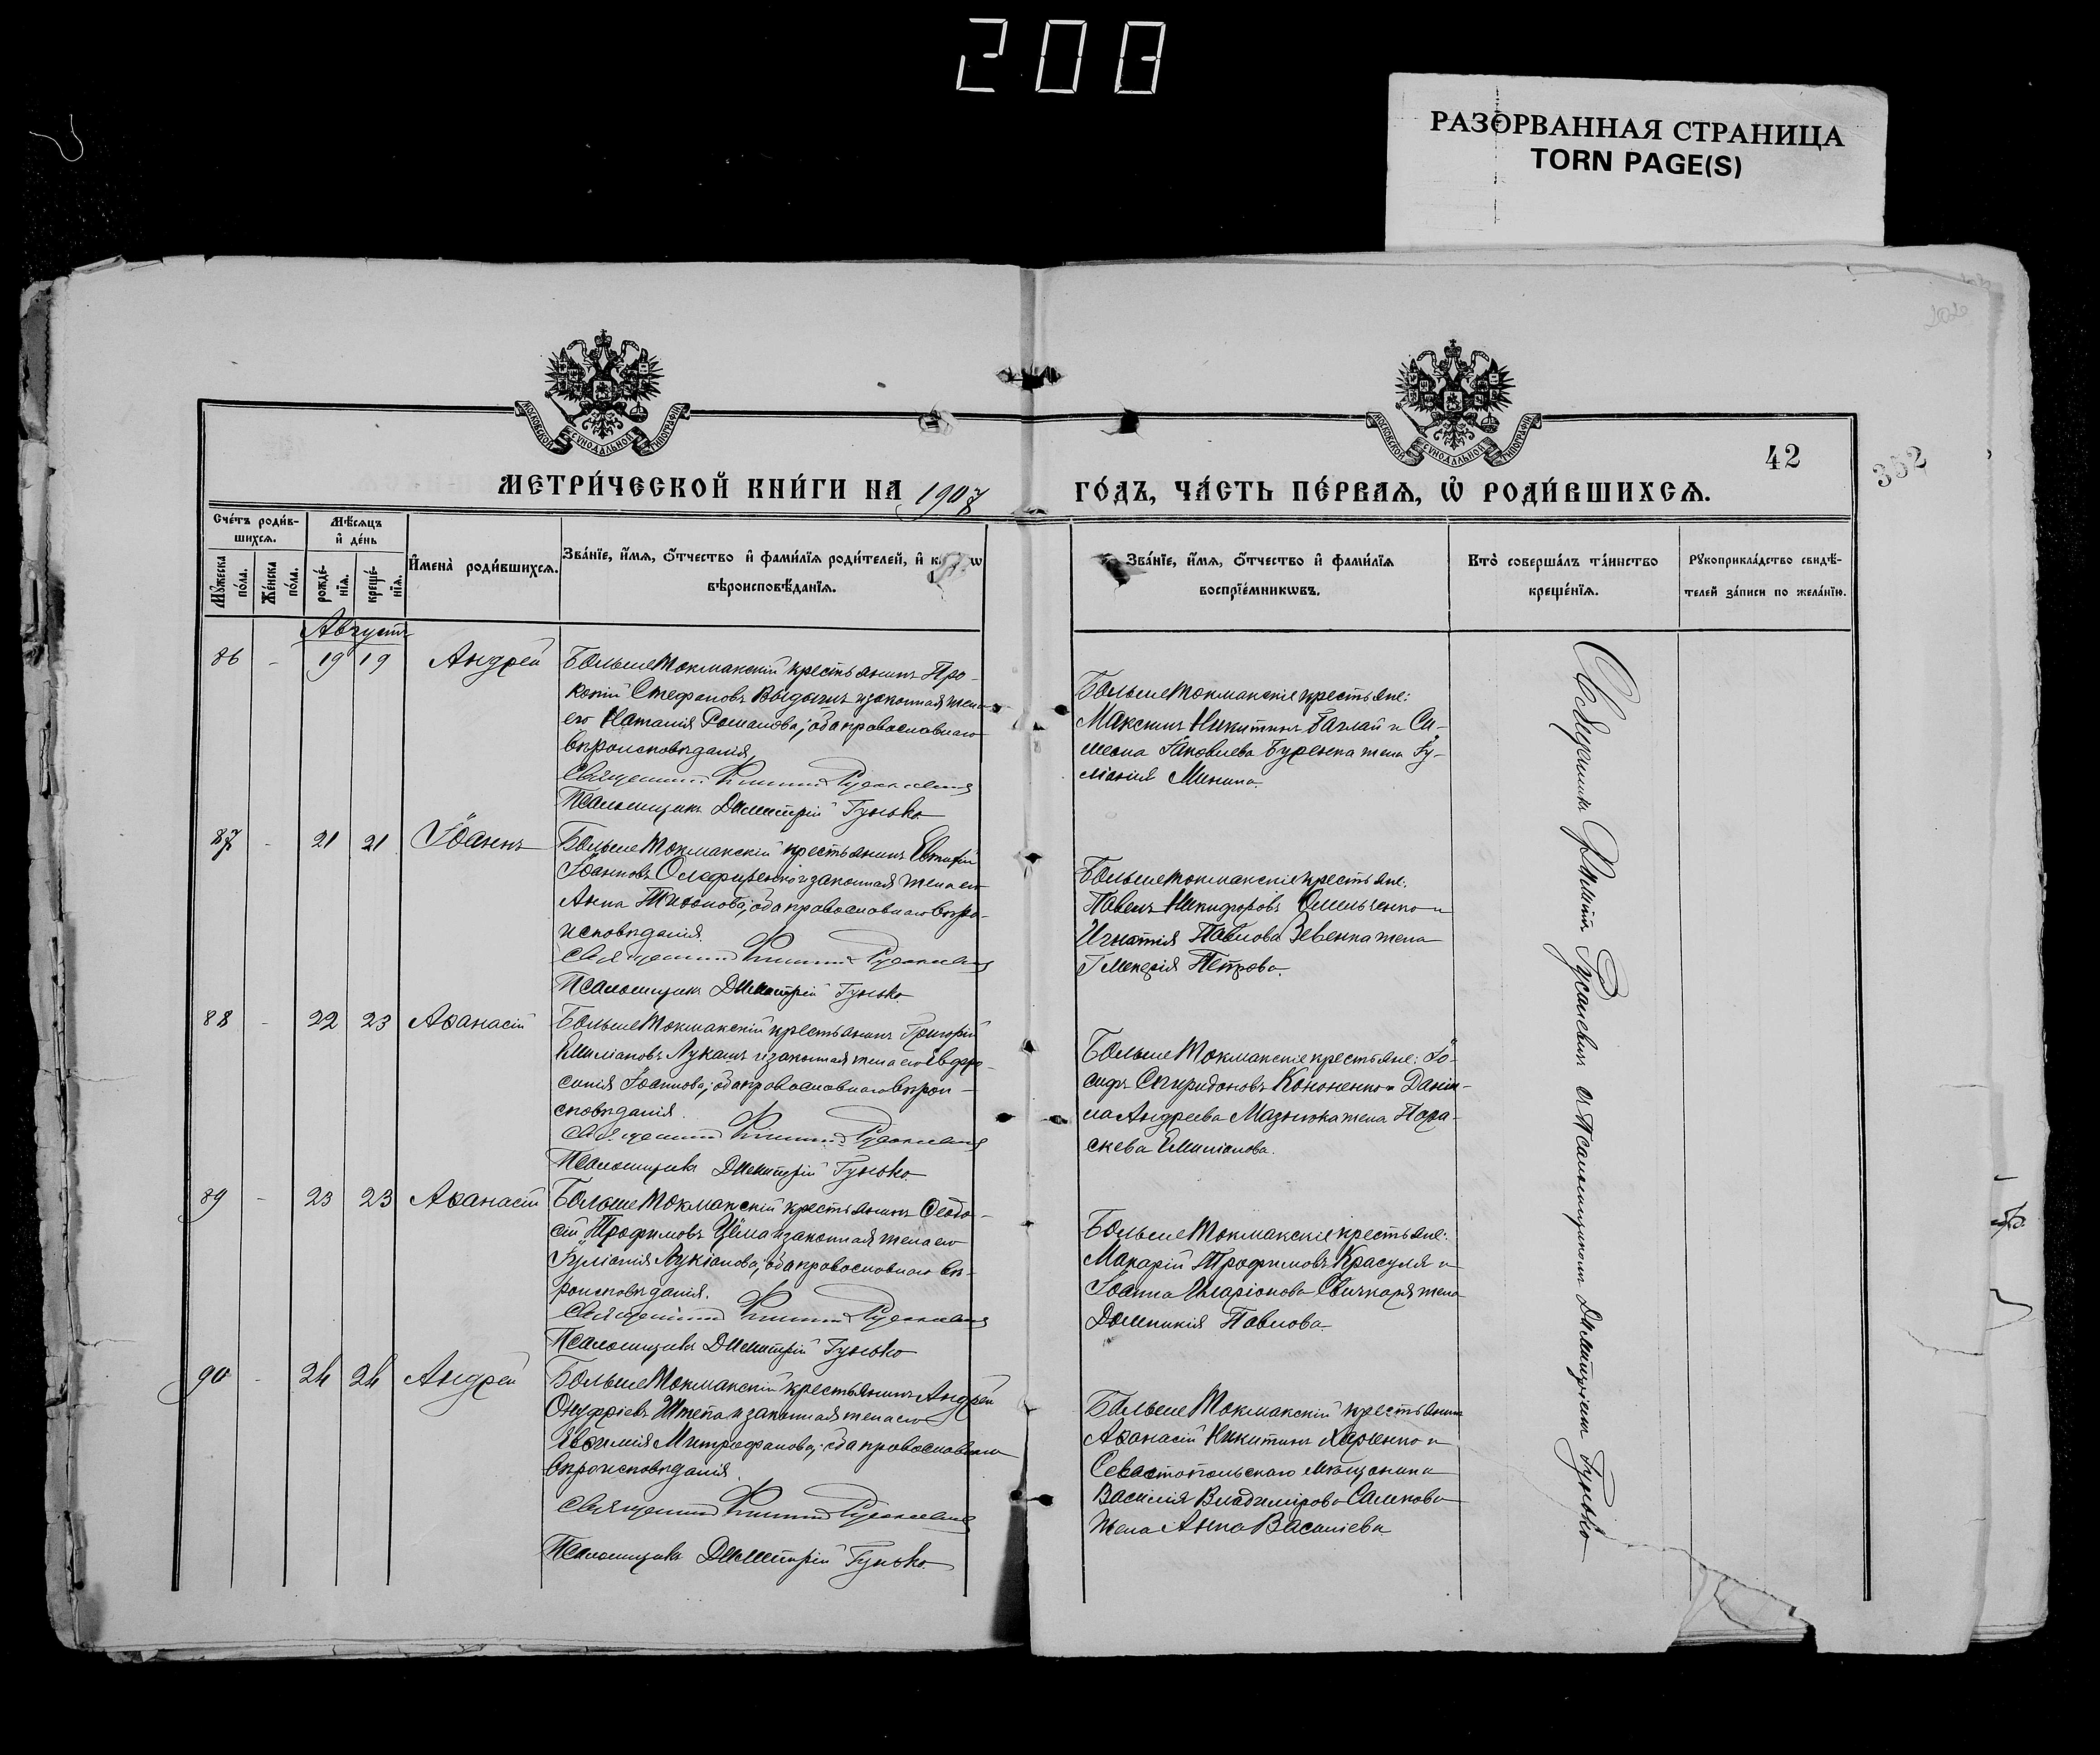 208
РАЗОРВАННАЯ СТРАНИЦА
TORN PAGE(S)
МОСКОВСКОЙ СѴНОДАЛЬНОЙ ТИПОГРАФІИ
МОСКОВСКОЙ СѴНОДАЛЬНОЙ ТИПОГРАФІИ
42
352
МЕТРИ́ЧЕСКОЙ КНИ́ГИ НА 1907
ГО́ДЪ, ЧА́СТЬ ПЕ́РВАѦ, Ѡ҆ РОДИ́ВШИХСѦ.
Сче́тъ роди́в-
шихсѧ.
Мꙋ́жеска по́ла.
Же́нска по́ла.
Мѣ́сѧцъ
и҆ де́нь
рожде́-
нїѧ.
креще́-
нїѧ.
И҆мена̀ роди́вшихсѧ.
Зва́нїе, и҆́мѧ, ѻ҆́тчество и҆ фами́лїѧ роди́телей, и҆
вѣроисповѣ́данїѧ.
Зва́нїе, и҆́мѧ, ѻ҆́тчество и҆ фами́лїѧ
воспрїе́мникѡвъ.
Кто̀ соверша́лъ та́инство
креще́нїѧ.
Рꙋкоприкла́дство свидѣ́-
телей за́писи по жела́нїю.
Августъ
86 - 19 19 Андрей
Больше Токмакскій крестьянинъ Про-
копій Стефановъ и законная жена
его Наталія Романова; оба православнаго
вѣроисповѣданія
Священникъ
Псаломщикъ Димитрій Гунько
Больше Токмакскіе крестьяне:
Максимъ Никитинъ Баглай и Си-
меона Іаковлева Буренка жена Іу-
ліанія Минина.
87 - 21 21 Іоаннъ
Больше Токмакскій крестьянинъ Евтифій
Іоанновъ и законная жена его
Анна Тихонова; оба православнаго вѣро-
исповѣданія.
Священникъ
Псаломщикъ Димитрій Гунько.
Больше Токмакскіе крестьяне:
Павелъ Никифоровъ Омельченко и
Игнатія Павлова Зевенка жена
Гликерія Петрова.
88 - 22 23 Аѳанасій
Больше Токмакскій крестьянинъ Григорій
Емиліановъ Лукашъ и законная жена его Евфро-
синія Іоаннова; оба православнаго вѣрои-
сповѣданія.
Священникъ
Псаломщикъ Димитрій Гунько.
Больше Токмакскіе крестьяне: Іо-
сифъ Спиридоновъ Кононенко и Дани-
ла Андреева Мазнюка жена Пара-
скева Емиліанова.
89 - 23 23 Аѳанасій
Больше Токмакскій крестьянинъ Ѳеодо-
сій Трофимовъ Цёма и законная жена его
Іуліанія Лукіанова; оба православнаго вѣ-
роисповѣданія.
Священникъ
Псаломщикъ Димитрій Гунько
Больше Токмакскіе крестьяне:
Макарій Трофимовъ Красуля и
Іоанна Иларіонова Свичкаря жена
Домникія Павлова.
90 - 24 24 Андрей
Больше Токмакскій крестьянинъ Андрей
Онуфріевъ Штепа и законная жена его
Евѳимія Митрофанова; оба православнаго
вѣроисповѣданія.
Священникъ
Псаломщикъ Димитрій Гунько.
Больше Токмакскій крестьянинъ
Аѳанасій Никитинъ Харченко и
Севастопольскаго мѣщанина
Василія Владимірова Саликова
жена Анна Василіева.
Священникъ съ Псаломщикомъ Димитріемъ Гунько